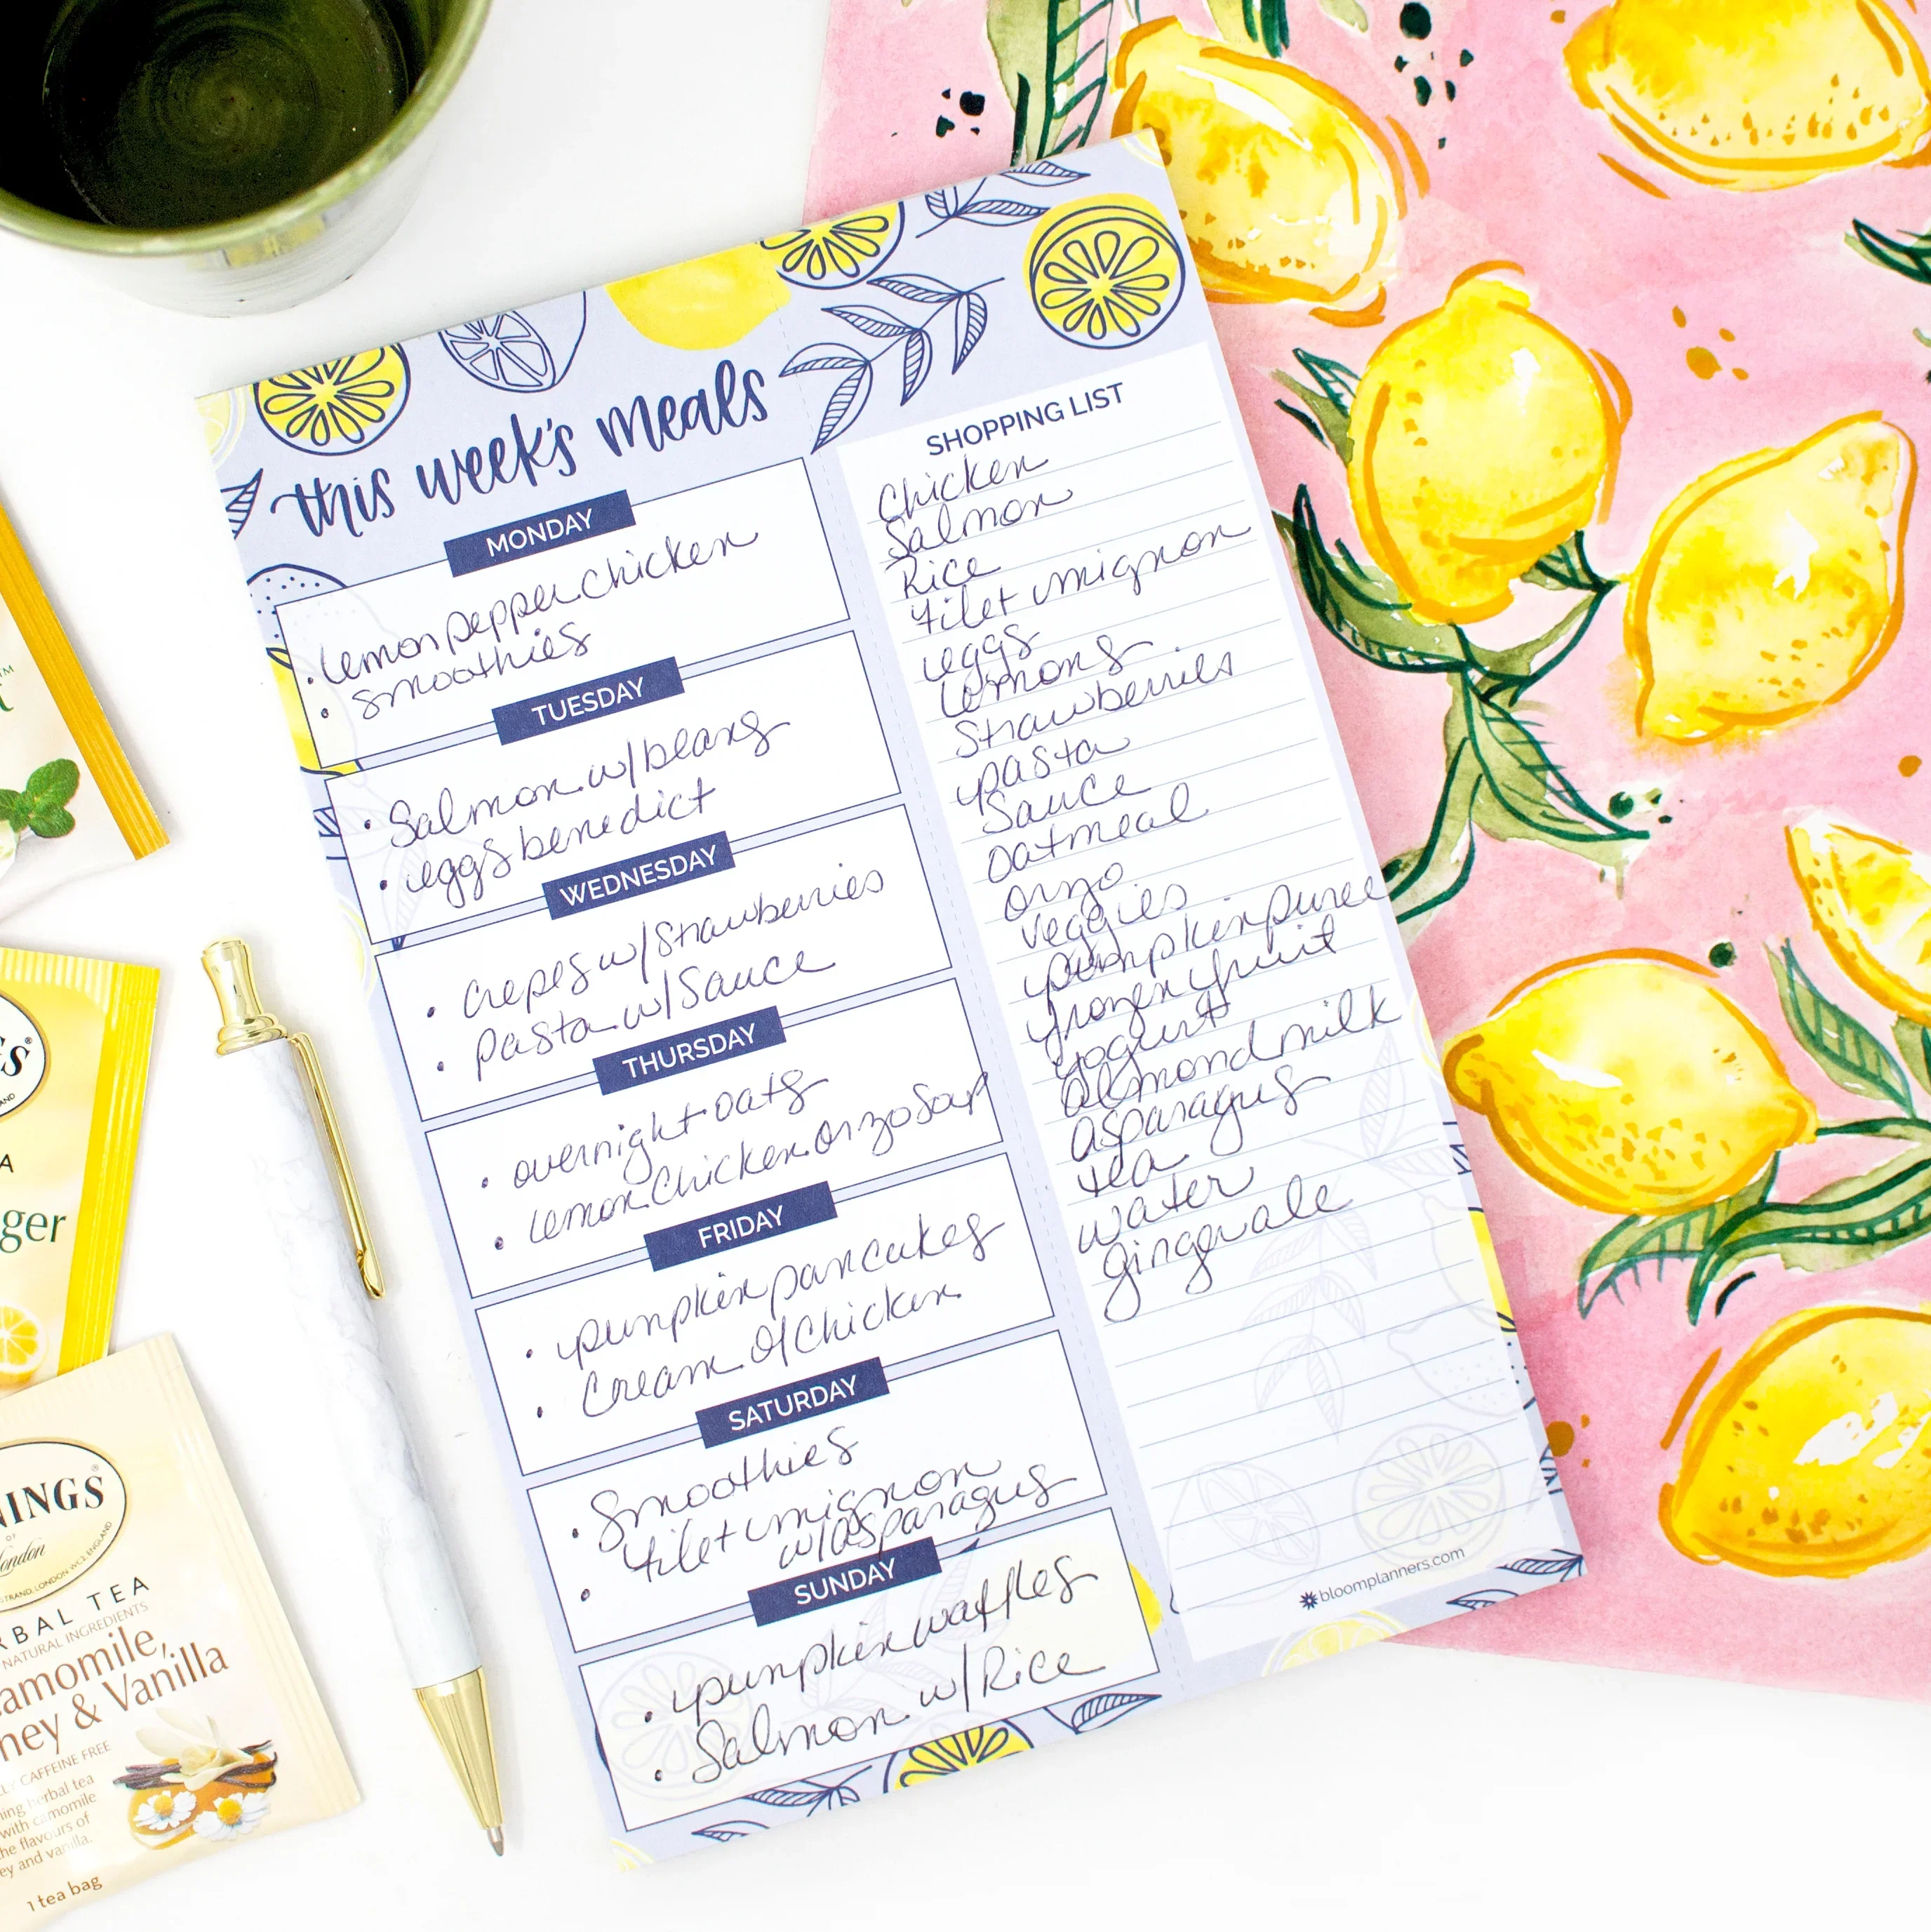 this week's meals
MONDAY
• lemon pepper chicken
• smoothies
TUESDAY
• Salmon w/beans
• eggs benedict
WEDNESDAY
• crepes w/Strawberries
• pasta w/Sauce
THURSDAY
• overnight oats
• lemon chicken orzo Soup
FRIDAY
• pumpkin pancakes
• Cream Of Chicken
SATURDAY
• Smoothies
• filet mignon
w/asparagus
SUNDAY
• pumpkin waffles
• Salmon w/Rice
SHOPPING LIST
Chicken
Salmon
Rice
filet mignon
eggs
lemons
Strawberries
pasta
Sauce
Oatmeal
orzo
veggies
pumpkin puree
frozen fruit
yogurt
almond milk
asparagus
tea
water
gingerale
bloomplanners.com
TM
®
AND
A
ger
NINGS
®
OF
London
STRAND, LONDON WC2, ENGLAND
RBAL TEA
NATURAL INGREDIENTS
amomile,
ney & Vanilla
LY CAFFEINE FREE
ning herbal tea
with camomile
he flavours of
ey and vanilla.
1 tea bag